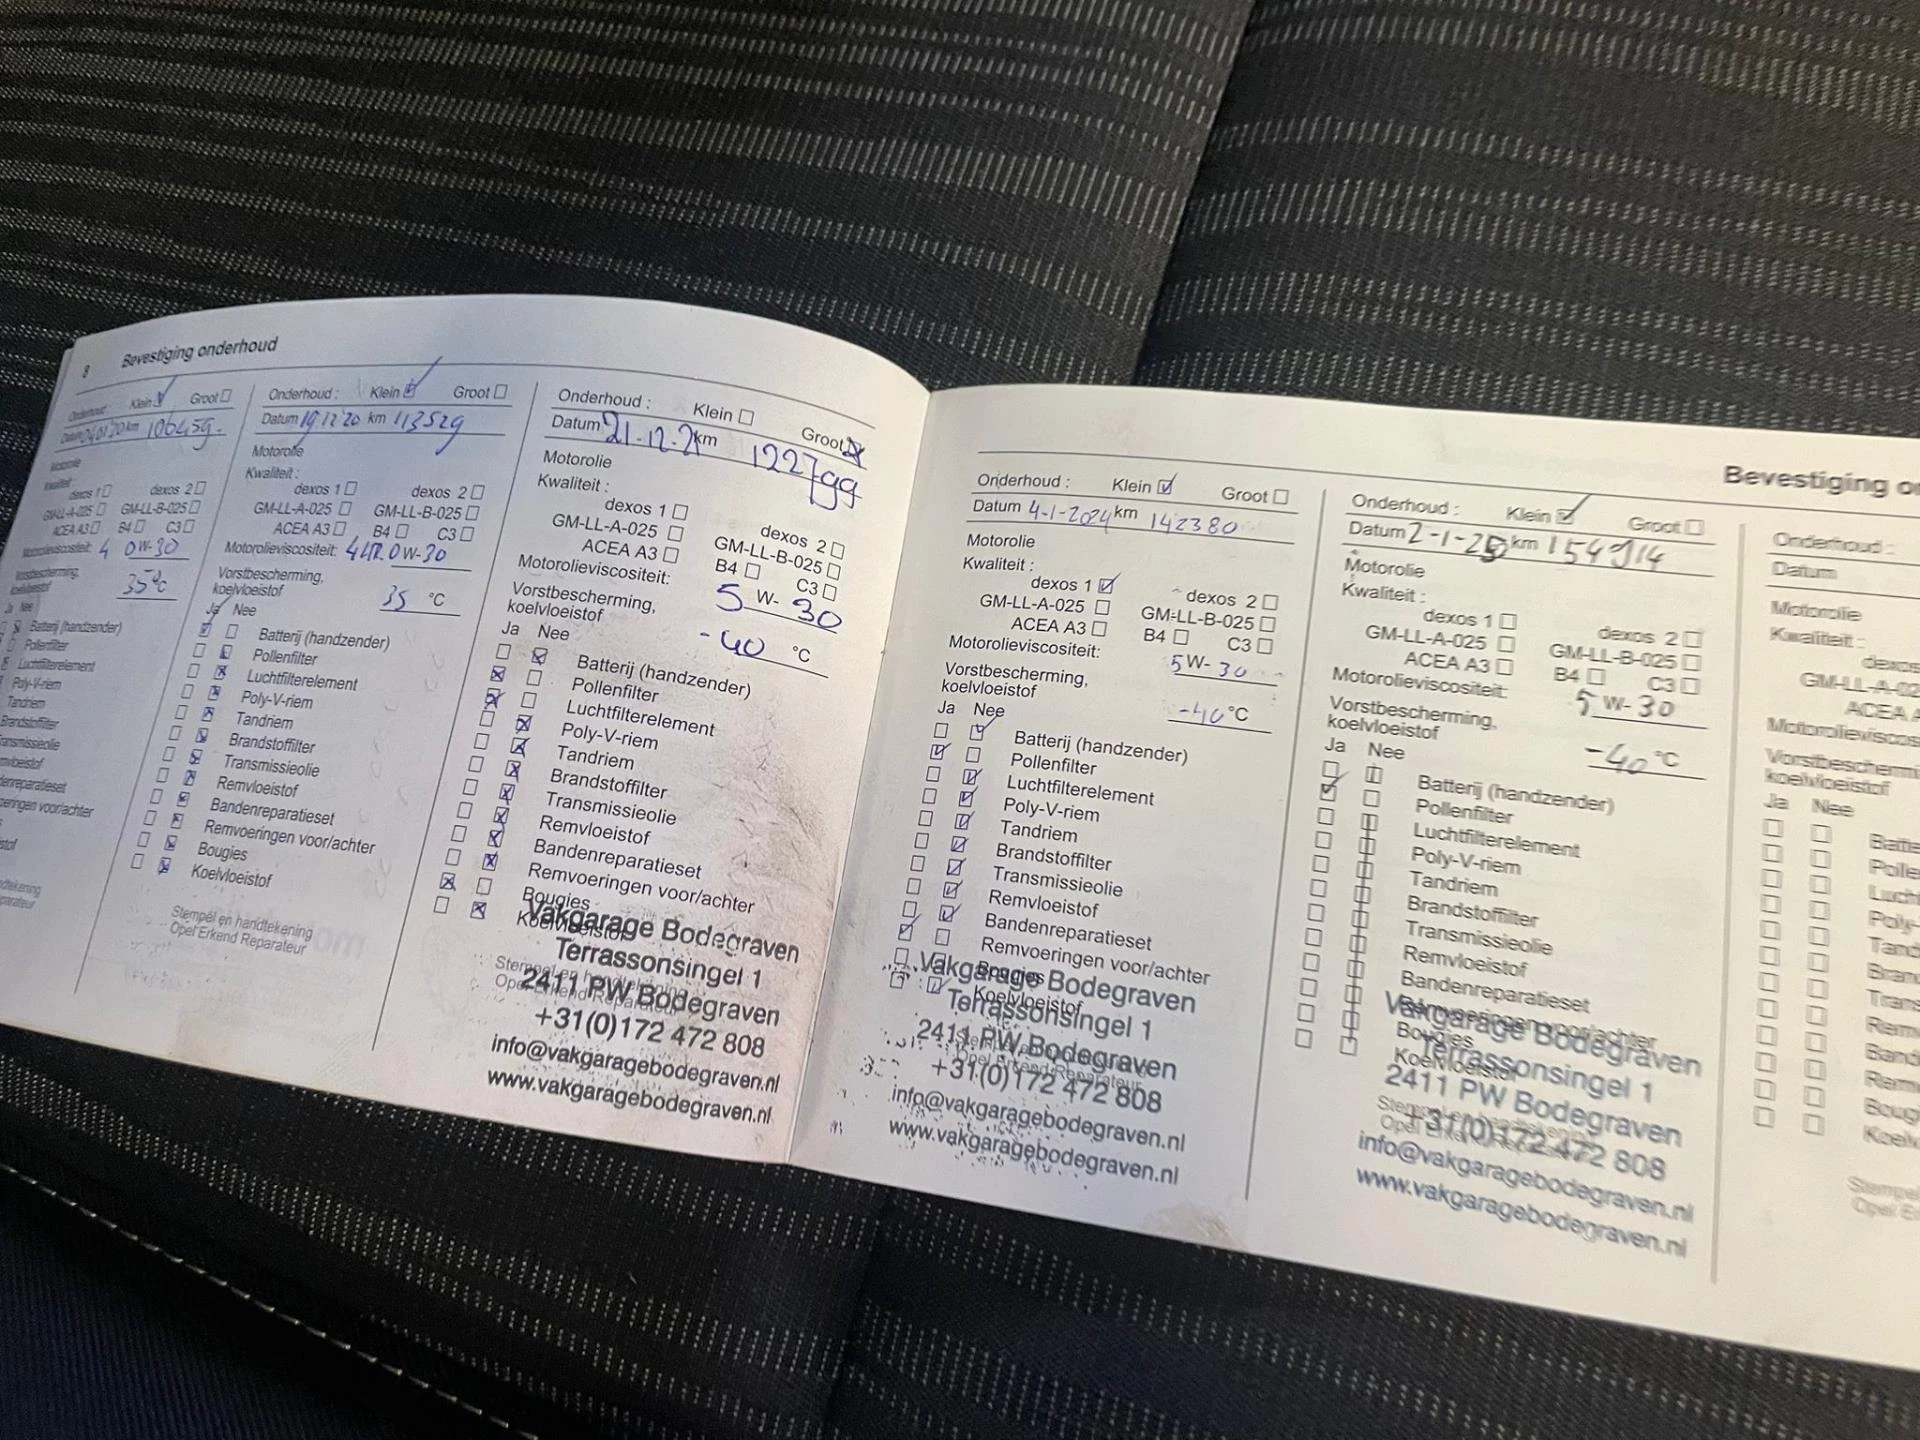 8 Bevestiging onderhoud
Onderhoud: Klein ☑ Groot ☐
km 106459.
Motorolie
Kwaliteit:
dexos 1 ☐ dexos 2 ☐
GM-LL-A-025 ☐ GM-LL-B-025 ☐
ACEA A3 ☐ B4 ☐ C3 ☐
Motorolieviscositeit: 4 0W-30
Vorstbescherming,
koelvloeistof 35 °C
Ja Nee
Batterij (handzender)
Pollenfilter
Luchtfilterelement
Poly-V-riem
Tandriem
Brandstoffilter
Onderhoud: Klein ☑ Groot ☐
Datum 19 12 '20 km 113529
Motorolie
Kwaliteit:
dexos 1 ☐ dexos 2 ☐
GM-LL-A-025 ☐ GM-LL-B-025 ☐
ACEA A3 ☐ B4 ☐ C3 ☐
Motorolieviscositeit: 4 LTR. 0W-30
Vorstbescherming,
koelvloeistof 35 °C
Ja Nee
☑ ☐ Batterij (handzender)
☐ ☒ Pollenfilter
☐ ☒ Luchtfilterelement
☐ ☒ Poly-V-riem
☐ ☒ Tandriem
☐ ☒ Brandstoffilter
☐ ☒ Transmissieolie
☐ ☒ Remvloeistof
☐ ☒ Bandenreparatieset
☐ ☒ Remvoeringen voor/achter
☐ ☒ Bougies
☐ ☒ Koelvloeistof
Stempel en handtekening
Opel Erkend Reparateur
Onderhoud: Klein ☐ Groot ☒
Datum 21-12-2 km 122799
Motorolie
Kwaliteit:
dexos 1 ☐ dexos 2 ☐
GM-LL-A-025 ☐ GM-LL-B-025 ☐
ACEA A3 ☐ B4 ☐ C3 ☐
Motorolieviscositeit: 5 W-30
Vorstbescherming,
koelvloeistof -40 °C
Ja Nee
☐ ☒ Batterij (handzender)
☒ ☐ Pollenfilter
☒ ☐ Luchtfilterelement
☐ ☒ Poly-V-riem
☐ ☒ Tandriem
☐ ☒ Brandstoffilter
☐ ☒ Transmissieolie
☐ ☒ Remvloeistof
☐ ☒ Bandenreparatieset
☐ ☒ Remvoeringen voor/achter
☒ ☐ Bougies
☐ ☒ Koelvloeistof
Stempel en handtekening
Opel Erkend Reparateur
Vakgarage Bodegraven
Terrassonsingel 1
2411 PW Bodegraven
+31(0)172 472 808
info@vakgaragebodegraven.nl
www.vakgaragebodegraven.nl
Bevestiging
Onderhoud: Klein ☑ Groot ☐
Datum 4-1-2024 km 142380
Motorolie
Kwaliteit:
dexos 1 ☑ dexos 2 ☐
GM-LL-A-025 ☐ GM-LL-B-025 ☐
ACEA A3 ☐ B4 ☐ C3 ☐
Motorolieviscositeit: 5 W-30
Vorstbescherming,
koelvloeistof -40 °C
Ja Nee
☐ ☑ Batterij (handzender)
☑ ☐ Pollenfilter
☐ ☑ Luchtfilterelement
☐ ☑ Poly-V-riem
☐ ☑ Tandriem
☐ ☑ Brandstoffilter
☐ ☑ Transmissieolie
☐ ☑ Remvloeistof
☐ ☑ Bandenreparatieset
☑ ☐ Remvoeringen voor/achter
Bougies
Koelvloeistof
Opel Erkend Reparateur
Vakgarage Bodegraven
Terrassonsingel 1
2411 PW Bodegraven
+31(0)172 472 808
info@vakgaragebodegraven.nl
www.vakgaragebodegraven.nl
Onderhoud: Klein ☑ Groot ☐
Datum 2-1-25 km 154914
Motorolie
Kwaliteit:
dexos 1 ☐ dexos 2 ☐
GM-LL-A-025 ☐ GM-LL-B-025 ☐
ACEA A3 ☐ B4 ☐ C3 ☐
Motorolieviscositeit: 5 W-30
Vorstbescherming,
koelvloeistof -40 °C
Ja Nee
Batterij (handzender)
Pollenfilter
Luchtfilterelement
Poly-V-riem
Tandriem
Brandstoffilter
Transmissieolie
Remvloeistof
Bandenreparatieset
Remvoeringen voor/achter
Bougies
Koelvloeistof
Vakgarage Bodegraven
Terrassonsingel 1
2411 PW Bodegraven
+31(0)172 472 808
info@vakgaragebodegraven.nl
www.vakgaragebodegraven.nl
Onderhoud:
Datum
Motorolie
Kwaliteit:
dexos
GM-LL-A-02
ACEA A
Motorolieviscos
Vorstbescherm
koelvloeistof
Ja Nee